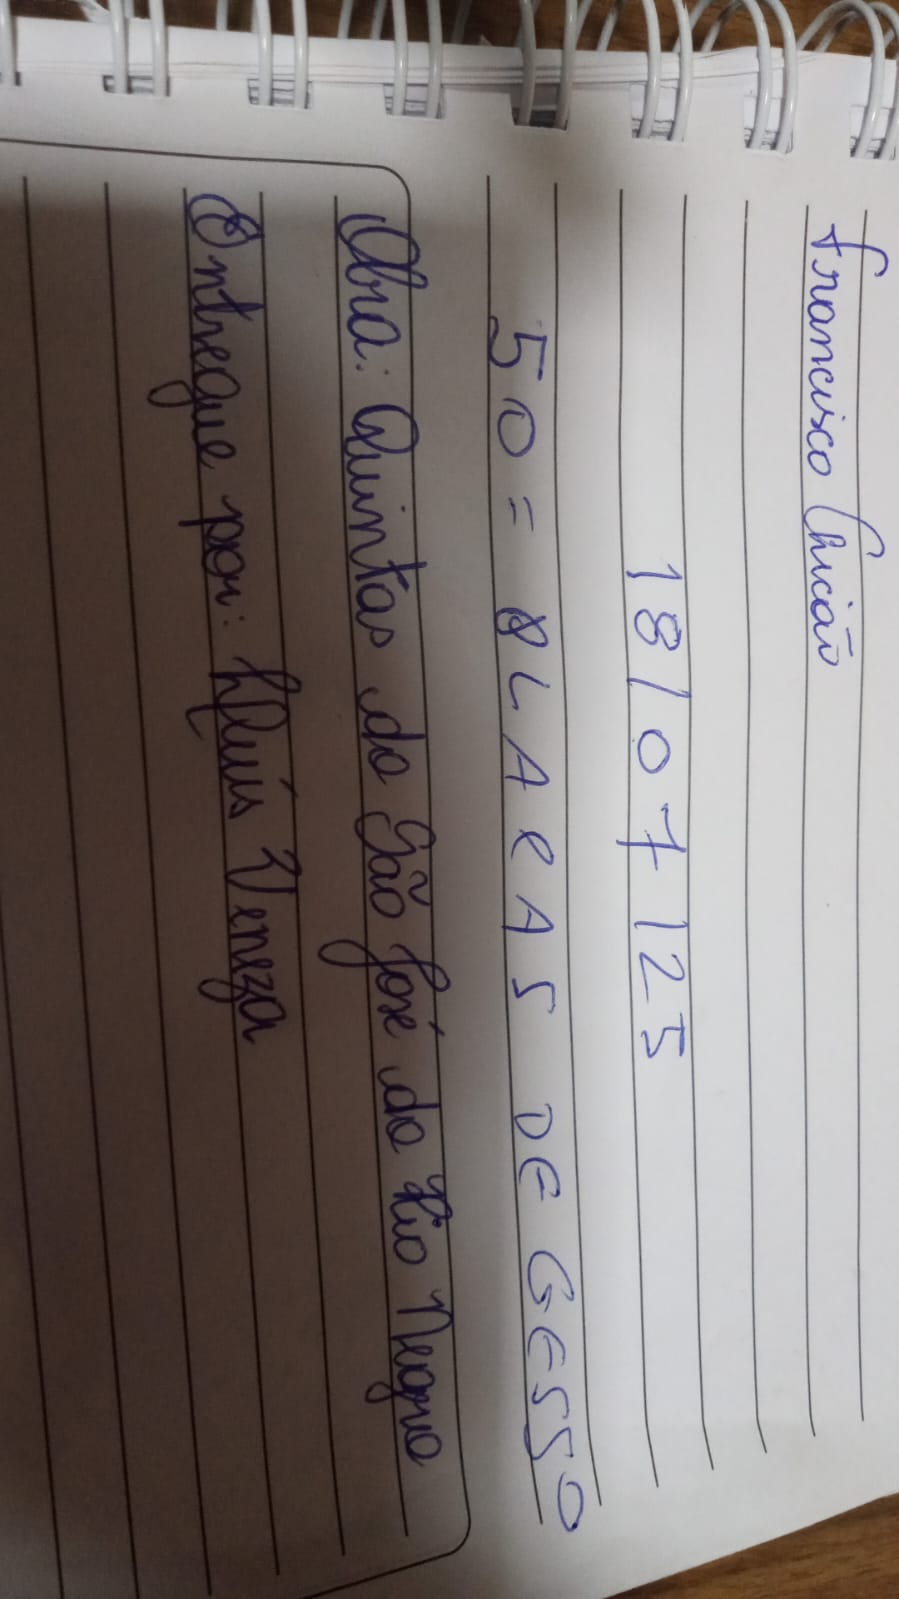 Francisco Chicão
18/07/25
50 = PLACAS DE GESSO
Obra: Quintas do São José do Rio Negro
Entregue por: Luís Veneza